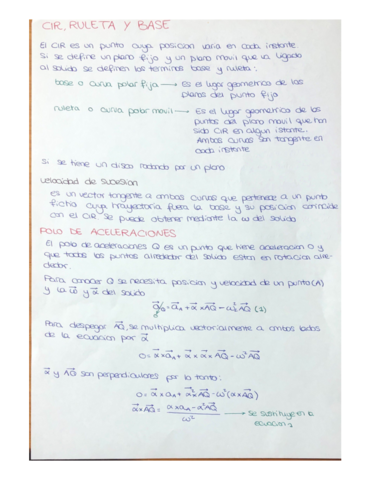 CIR, RULETA Y BASE
El CIR es un punto cuya posicion varia en cada instante.
Si se define un plano fijo y un plano movil que va ligado
al solido se definen los terminos base y ruleta:
base o curva polar fija → Es el lugar geometrico de los
planos del punto fijo
ruleta o curva polar movil → Es el lugar geometrico de los
puntos del plano movil que han
sido CIR en algun istante.
Ambas curvas son tangente en
cada instante
Si se tiene un disco rodando por un plano
velocidad de sucesion
Es un vector tangente a ambas curvas que pertenece a un punto
fictia cuya trayectoria fuera la base y su posicion coincide
con el CIR se puede obtener mediante la ω del solido
POLO DE ACELERACIONES
El polo de aceleraciones Q es un punto que tiene aceleracion 0 y
que todos los puntos alrededor del solido estan en rotacion alre-
dedor.
Para conocer Q se necesita posicion y velocidad de un punto (A)
y la ω⃗ y α⃗ del solido
= a⃗A + α⃗ × A⃗Q − ω² A⃗Q (1)
Para despejar A⃗Q, se multiplica vectorialmente a ambos lados
de la ecuacion por α⃗
0 = α⃗ × a⃗A + α⃗ × α⃗ × A⃗Q − ω² A⃗Q
α⃗ y A⃗Q son perpendiculares por lo tanto:
0 = α⃗ × aA + α⃗² × A⃗Q − ω² (α × A⃗Q)
α⃗ × A⃗Q = (α × aA − α² A⃗Q) / ω² → se sustituye en la
ecuacion 1